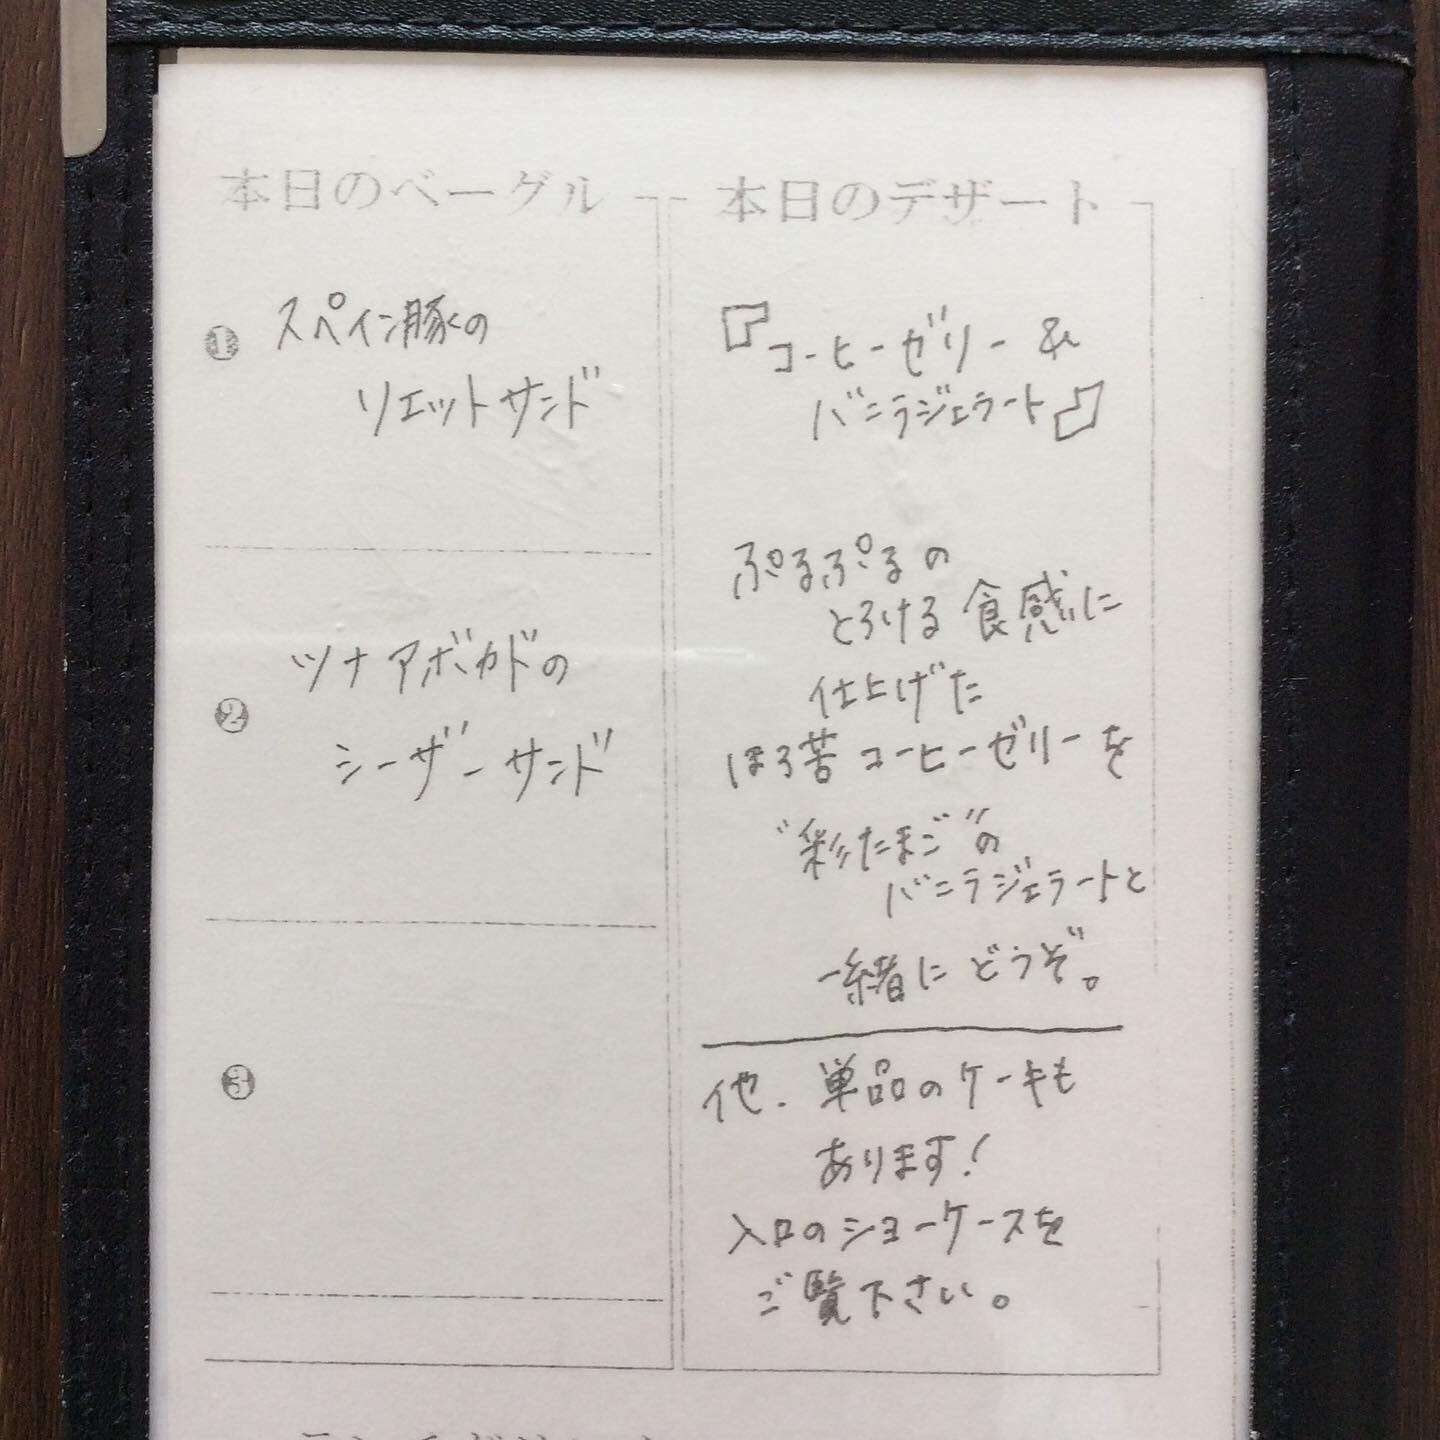 本日のベーグル
❶ スペイン豚の
リエットサンド
❷ ツナアボカドの
シーザーサンド
❸
本日のデザート
『コーヒーゼリー &
バニラジェラート』
ぷるぷるの
とろける食感に
仕上げた
ほろ苦コーヒーゼリーを
"彩たまご"の
バニラジェラートと
一緒にどうぞ。
他、単品のケーキも
あります!
入口のショーケースを
ご覧下さい。